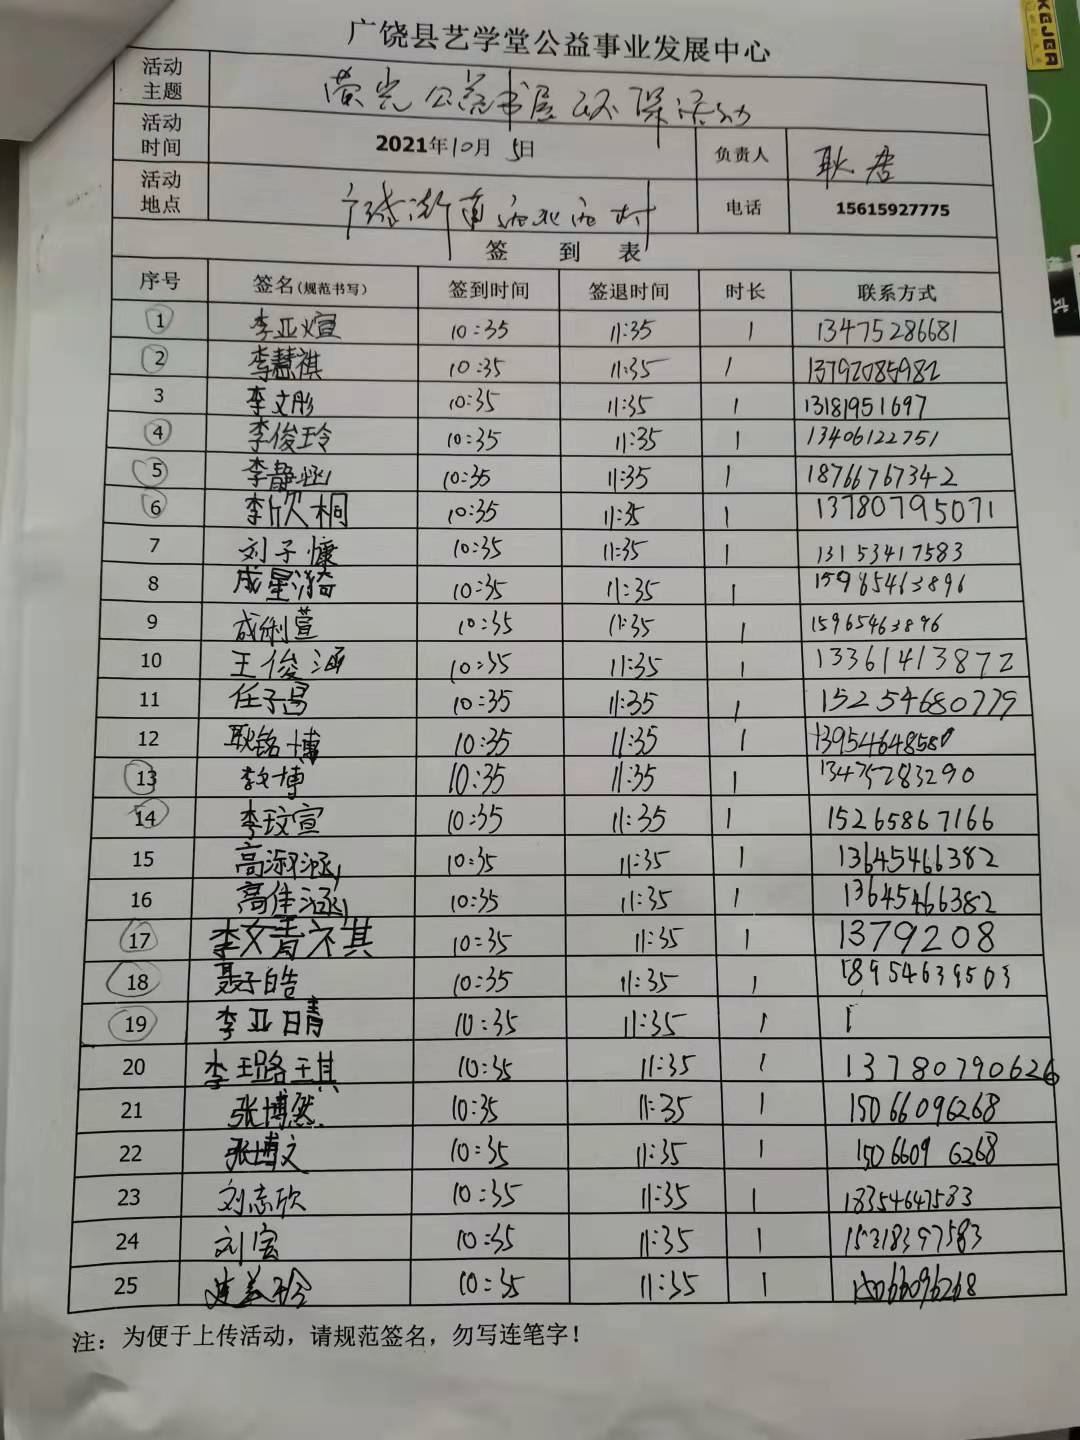 广饶县艺学堂公益事业发展中心
活动主题 萤光公益书屋环保活动
活动时间 2021年10月5日 负责人 耿
活动地点 村 电话 15615927775
签 到 表
序号 签名(规范书写) 签到时间 签退时间 时长 联系方式
1 李亚煊 10:35 11:35 1 13475286681
2 李慧祺 10:35 11:35 1 13792085982
3 李文彤 10:35 11:35 1 13181951697
4 李俊玲 10:35 11:35 1 13406122751
5 李静 10:35 11:35 1 18766767342
6 李欣桐 10:35 11:35 1 13780795071
7 刘子慷 10:35 11:35 1 13153417583
8 成星漪 10:35 11:35 1 15965463896
9 成俐萱 10:35 11:35 1 15965463896
10 王俊涵 10:35 11:35 1 13361413872
11 任子昌 10:35 11:35 1 15254680779
12 耿铭博 10:35 11:35 1 13954648580
13 李文博 10:35 11:35 1 13475283290
14 李玟宣 10:35 11:35 1 15265867166
15 高淑涵 10:35 11:35 1 13645466382
16 高佳涵 10:35 11:35 1 13645466382
17 李文青祺 10:35 11:35 1 1379208
18 聂子皓 10:35 11:35 1 18954639503
19 李亚晴 10:35 11:35 1 1
20 李璐琪 10:35 11:35 1 13780790626
21 张博然 10:35 11:35 1 15066096268
22 张博文 10:35 11:35 1 15066096268
23 刘志欣 10:35 11:35 1 18354647583
24 刘宝 10:35 11:35 1
25 10:35 11:35 1 15066096268
注：为便于上传活动，请规范签名，勿写连笔字！